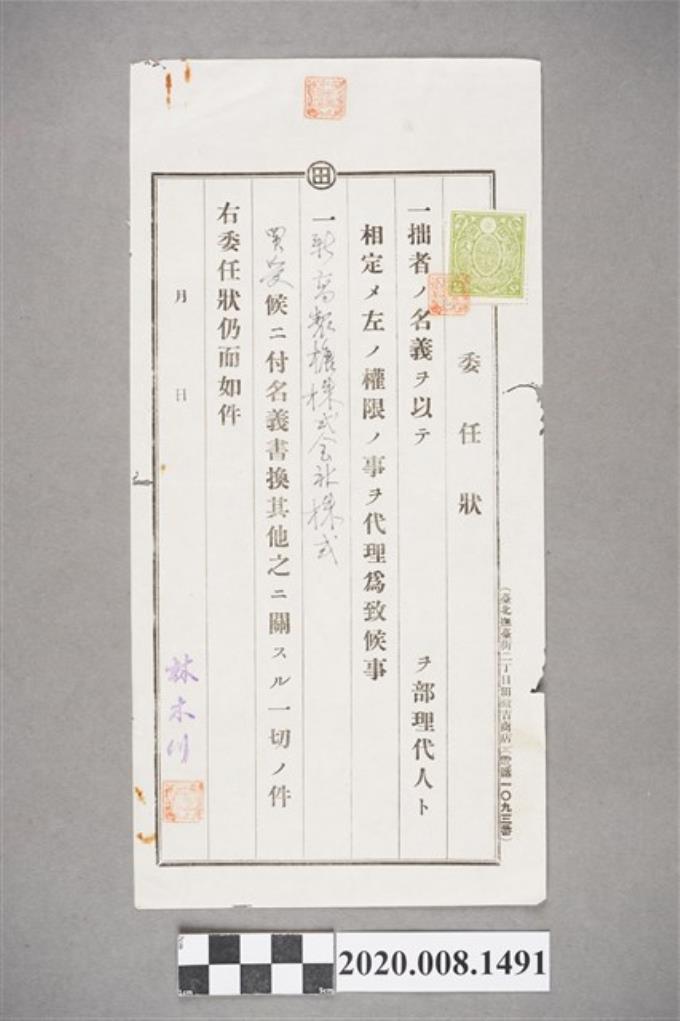 田
委任狀
一拙者ノ名義ヲ以テ　ヲ部理代人ト
相定メ左ノ權限ノ事ヲ代理爲致候事
一新高製糖株式会社株式
買受候ニ付名義書換其他之ニ關スル一切ノ件
右委任狀仍而如件
月　日
林木川
(臺北撫臺街二丁目田 吉商店 電話一〇九三番)
2020.008.1491